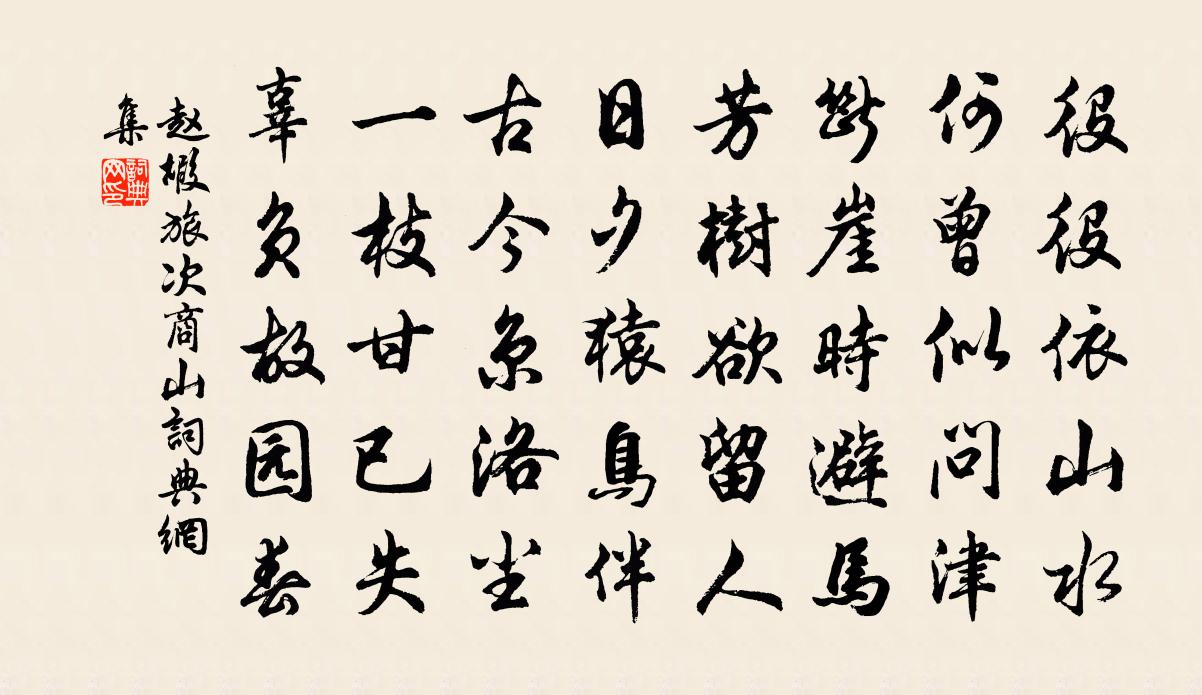 役役依山水
何曾似問津
斷崖時避馬
芳樹欲留人
日夕猿鳥伴
古今京洛尘
一枝甘已失
辜负故园春
赵嘏旅次商山詞典網
集
詞典網印